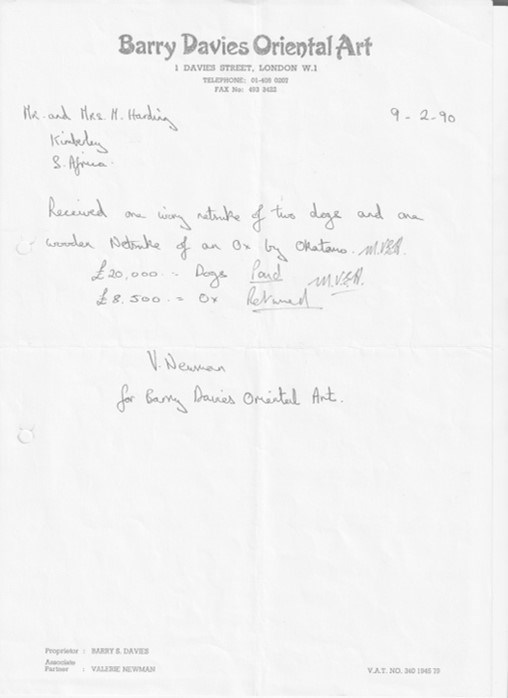 Barry Davies Oriental Art
1 DAVIES STREET, LONDON W.1
TELEPHONE: 01-408 0207
FAX No: 493 3422
Mr. and Mrs. M. Harding
9 - 2 - 90
Kimberley
S. Africa.
Received one ivory netsuke of two dogs and one
wooden Netsuke of an Ox by Okatomo.
£20,000.= Dogs Paid
£8,500.= Ox Returned
V. Newman
for Barry Davies Oriental Art.
Proprietor : BARRY S. DAVIES
Associate
Partner : VALERIE NEWMAN
V.A.T. NO. 340 1945 79